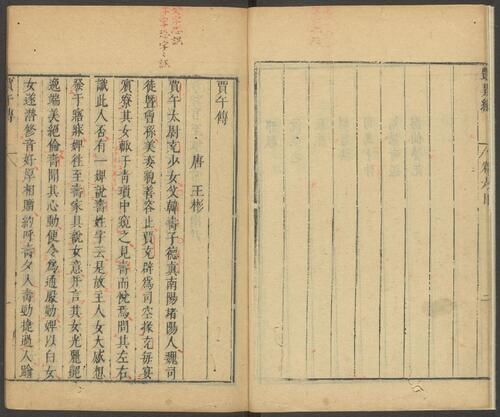 賈午傳
唐 王彬
賈午太尉充少女父韓壽子德真南陽堵陽人魏司
徒暨曾孫美姿貌善容止賈充辟為司空掾充每宴
賓寮其女輙于青瑣中窺之見壽而悅焉問其左右
識此人否有一婢說壽姓字云是故主人女大感想
發于寤寐婢往至壽家具說女意并言其女光麗絕
逸端美絕倫壽聞其心動便令為通慇勤婢以白女
女遂潛修音好厚相贈約呼壽夕入壽勁捷過人踰
賈午傳